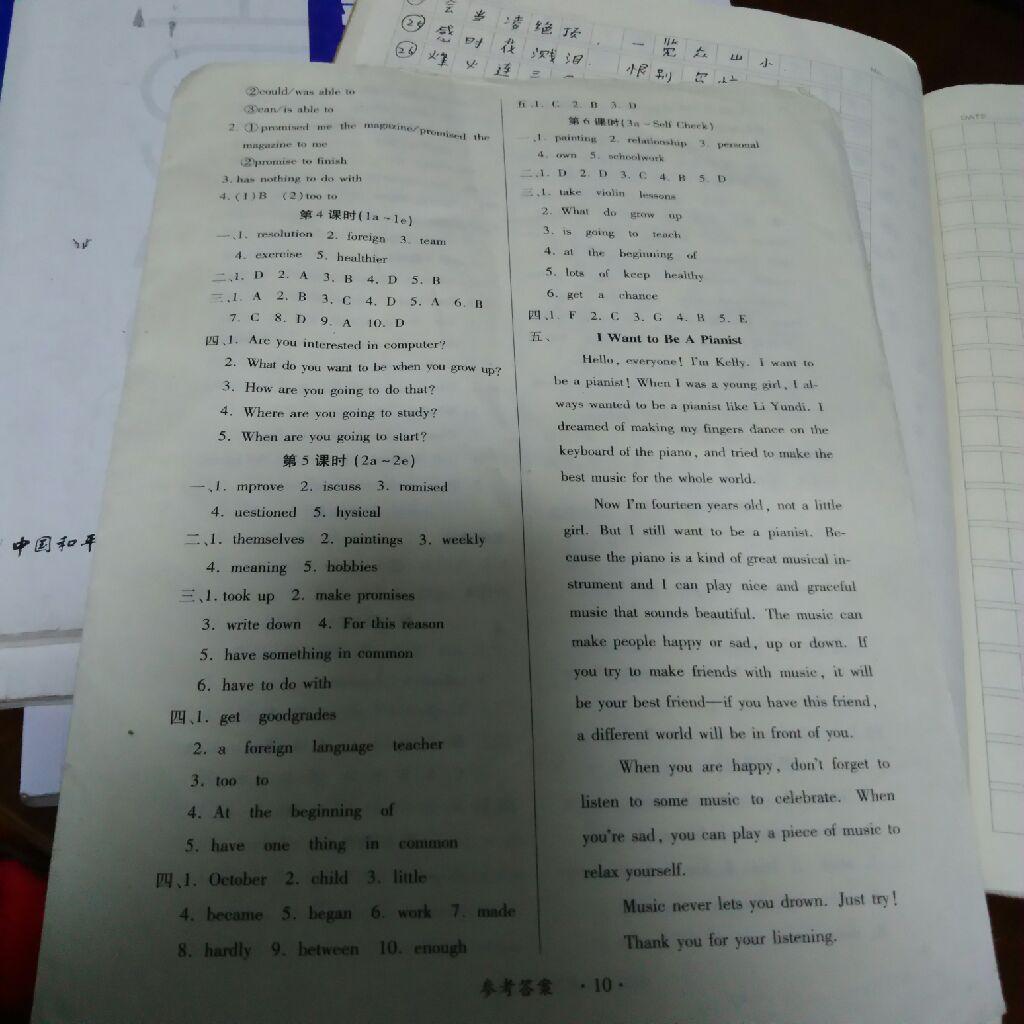 会当凌绝顶,一览众山小
感时花溅泪 恨别
烽火连三
②could/was able to
③can/is able to
2. ①promised me the magazine/promised the
magazine to me
②promise to finish
3. has nothing to do with
4. (1)B (2)too to
第4课时(1a~1e)
一、1. resolution 2. foreign 3. team
4. exercise 5. healthier
二、1. D 2. A 3. B 4. D 5. B
三、1. A 2. B 3. C 4. D 5. A 6. B
7. C 8. D 9. A 10. D
四、1. Are you interested in computer?
2. What do you want to be when you grow up?
3. How are you going to do that?
4. Where are you going to study?
5. When are you going to start?
第5课时(2a~2e)
一、1. mprove 2. iscuss 3. romised
4. uestioned 5. hysical
二、1. themselves 2. paintings 3. weekly
4. meaning 5. hobbies
三、1. took up 2. make promises
3. write down 4. For this reason
5. have something in common
6. have to do with
四、1. get goodgrades
2. a foreign language teacher
3. too to
4. At the beginning of
5. have one thing in common
四、1. October 2. child 3. little
4. became 5. began 6. work 7. made
8. hardly 9. between 10. enough
五、1. C 2. B 3. D
第6课时(3a~Self Check)
一、1. painting 2. relationship 3. personal
4. own 5. schoolwork
二、1. D 2. D 3. C 4. B 5. D
三、1. take violin lessons
2. What do grow up
3. is going to teach
4. at the beginning of
5. lots of keep healthy
6. get a chance
四、1. F 2. C 3. G 4. B 5. E
五、 I Want to Be A Pianist
Hello, everyone! I'm Kelly. I want to
be a pianist! When I was a young girl, I al-
ways wanted to be a pianist like Li Yundi. I
dreamed of making my fingers dance on the
keyboard of the piano, and tried to make the
best music for the whole world.
Now I'm fourteen years old, not a little
girl. But I still want to be a pianist. Be-
cause the piano is a kind of great musical in-
strument and I can play nice and graceful
music that sounds beautiful. The music can
make people happy or sad, up or down. If
you try to make friends with music, it will
be your best friend—if you have this friend,
a different world will be in front of you.
When you are happy, don't forget to
listen to some music to celebrate. When
you're sad, you can play a piece of music to
relax yourself.
Music never lets you drown. Just try!
Thank you for your listening.
参考答案 ·10·
中国和平
DATE